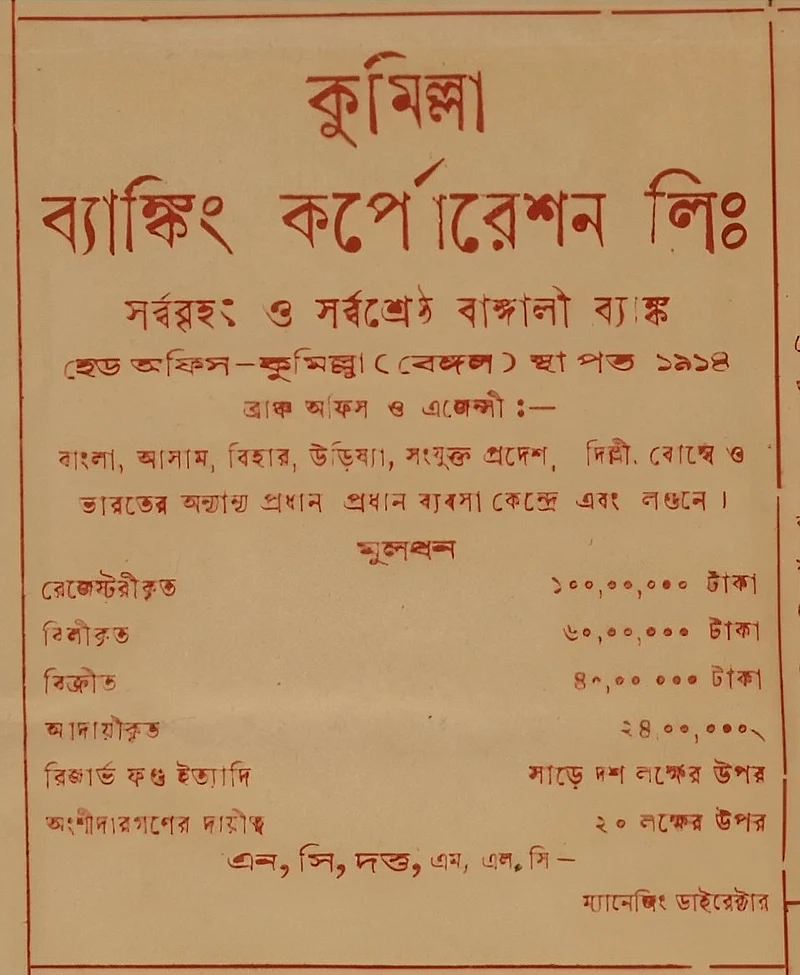 কুমিল্লা
ব্যাঙ্কিং কর্পোরেশন লিঃ
সর্ব্ববৃহৎ ও সর্ব্বশ্রেষ্ঠ বাঙ্গালী ব্যাঙ্ক
হেড অফিস-কুমিল্লা (বেঙ্গল) স্থাপিত ১৯১৪
ব্রাঞ্চ অফিস ও এজেন্সী :—
বাংলা, আসাম, বিহার, উড়িষ্যা, সংযুক্ত প্রদেশ, দিল্লী, বোম্বে ও
ভারতের অন্যান্য প্রধান প্রধান ব্যবসা কেন্দ্রে এবং লণ্ডনে।
মূলধন
রেজেস্টরীকৃত ১০০,০০,০০০ টাকা
বিলীকৃত ৬০,০০,০০০ টাকা
বিক্রীত ৪০,০০ ০০০ টাকা
আদায়ীকৃত ২৪,০০,০০০৲
রিজার্ভ ফণ্ড ইত্যাদি সাড়ে দশ লক্ষের উপর
অংশীদারগণের দায়ীত্ব ২০ লক্ষের উপর
এন, সি, দত্ত, এম, এল, সি –
ম্যানেজিং ডাইরেক্টার